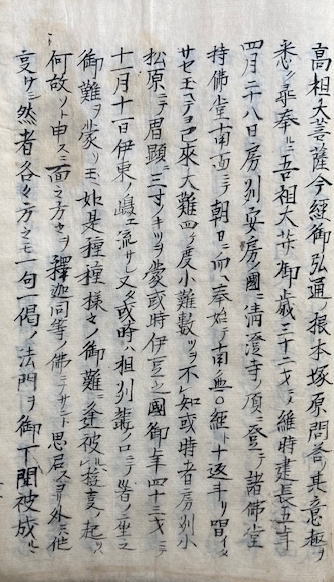 高祖大菩薩今経御弘通根本塚原問答其意趣ヲ
悉ク尋奉ルニ吾祖大士御歳三十二才ニ〆維時建長五年
四月二十八日房州安房ノ國ニ清澄寺ノ頂ニ登テ諸佛堂
持佛堂ノ南面ニテ朝日ニ向ハ奉始テ南無〇経ト十返斗リ唱イ
サセ玉テヨリ已來大難四ケ度小難數ヲ不知或時者房州小
松原ニテ眉顕ニ三寸ノキツヲ蒙或時伊豆之國御年四十三才ニテ
十一月十一日伊東ノ嶋エ流サレ又或時ハ相州龍ノ口ニテ首ノ座之
御難ヲ蒙リ玉如是種種様々ノ御難ニ逢被
何故ソト申スニ一面之方々ヲ釋迦同等ノ佛ニナサント思召ヨリ外ニ他
事ナシ然者各々方之モ一句一偈ノ法門ヲ御下聞被成